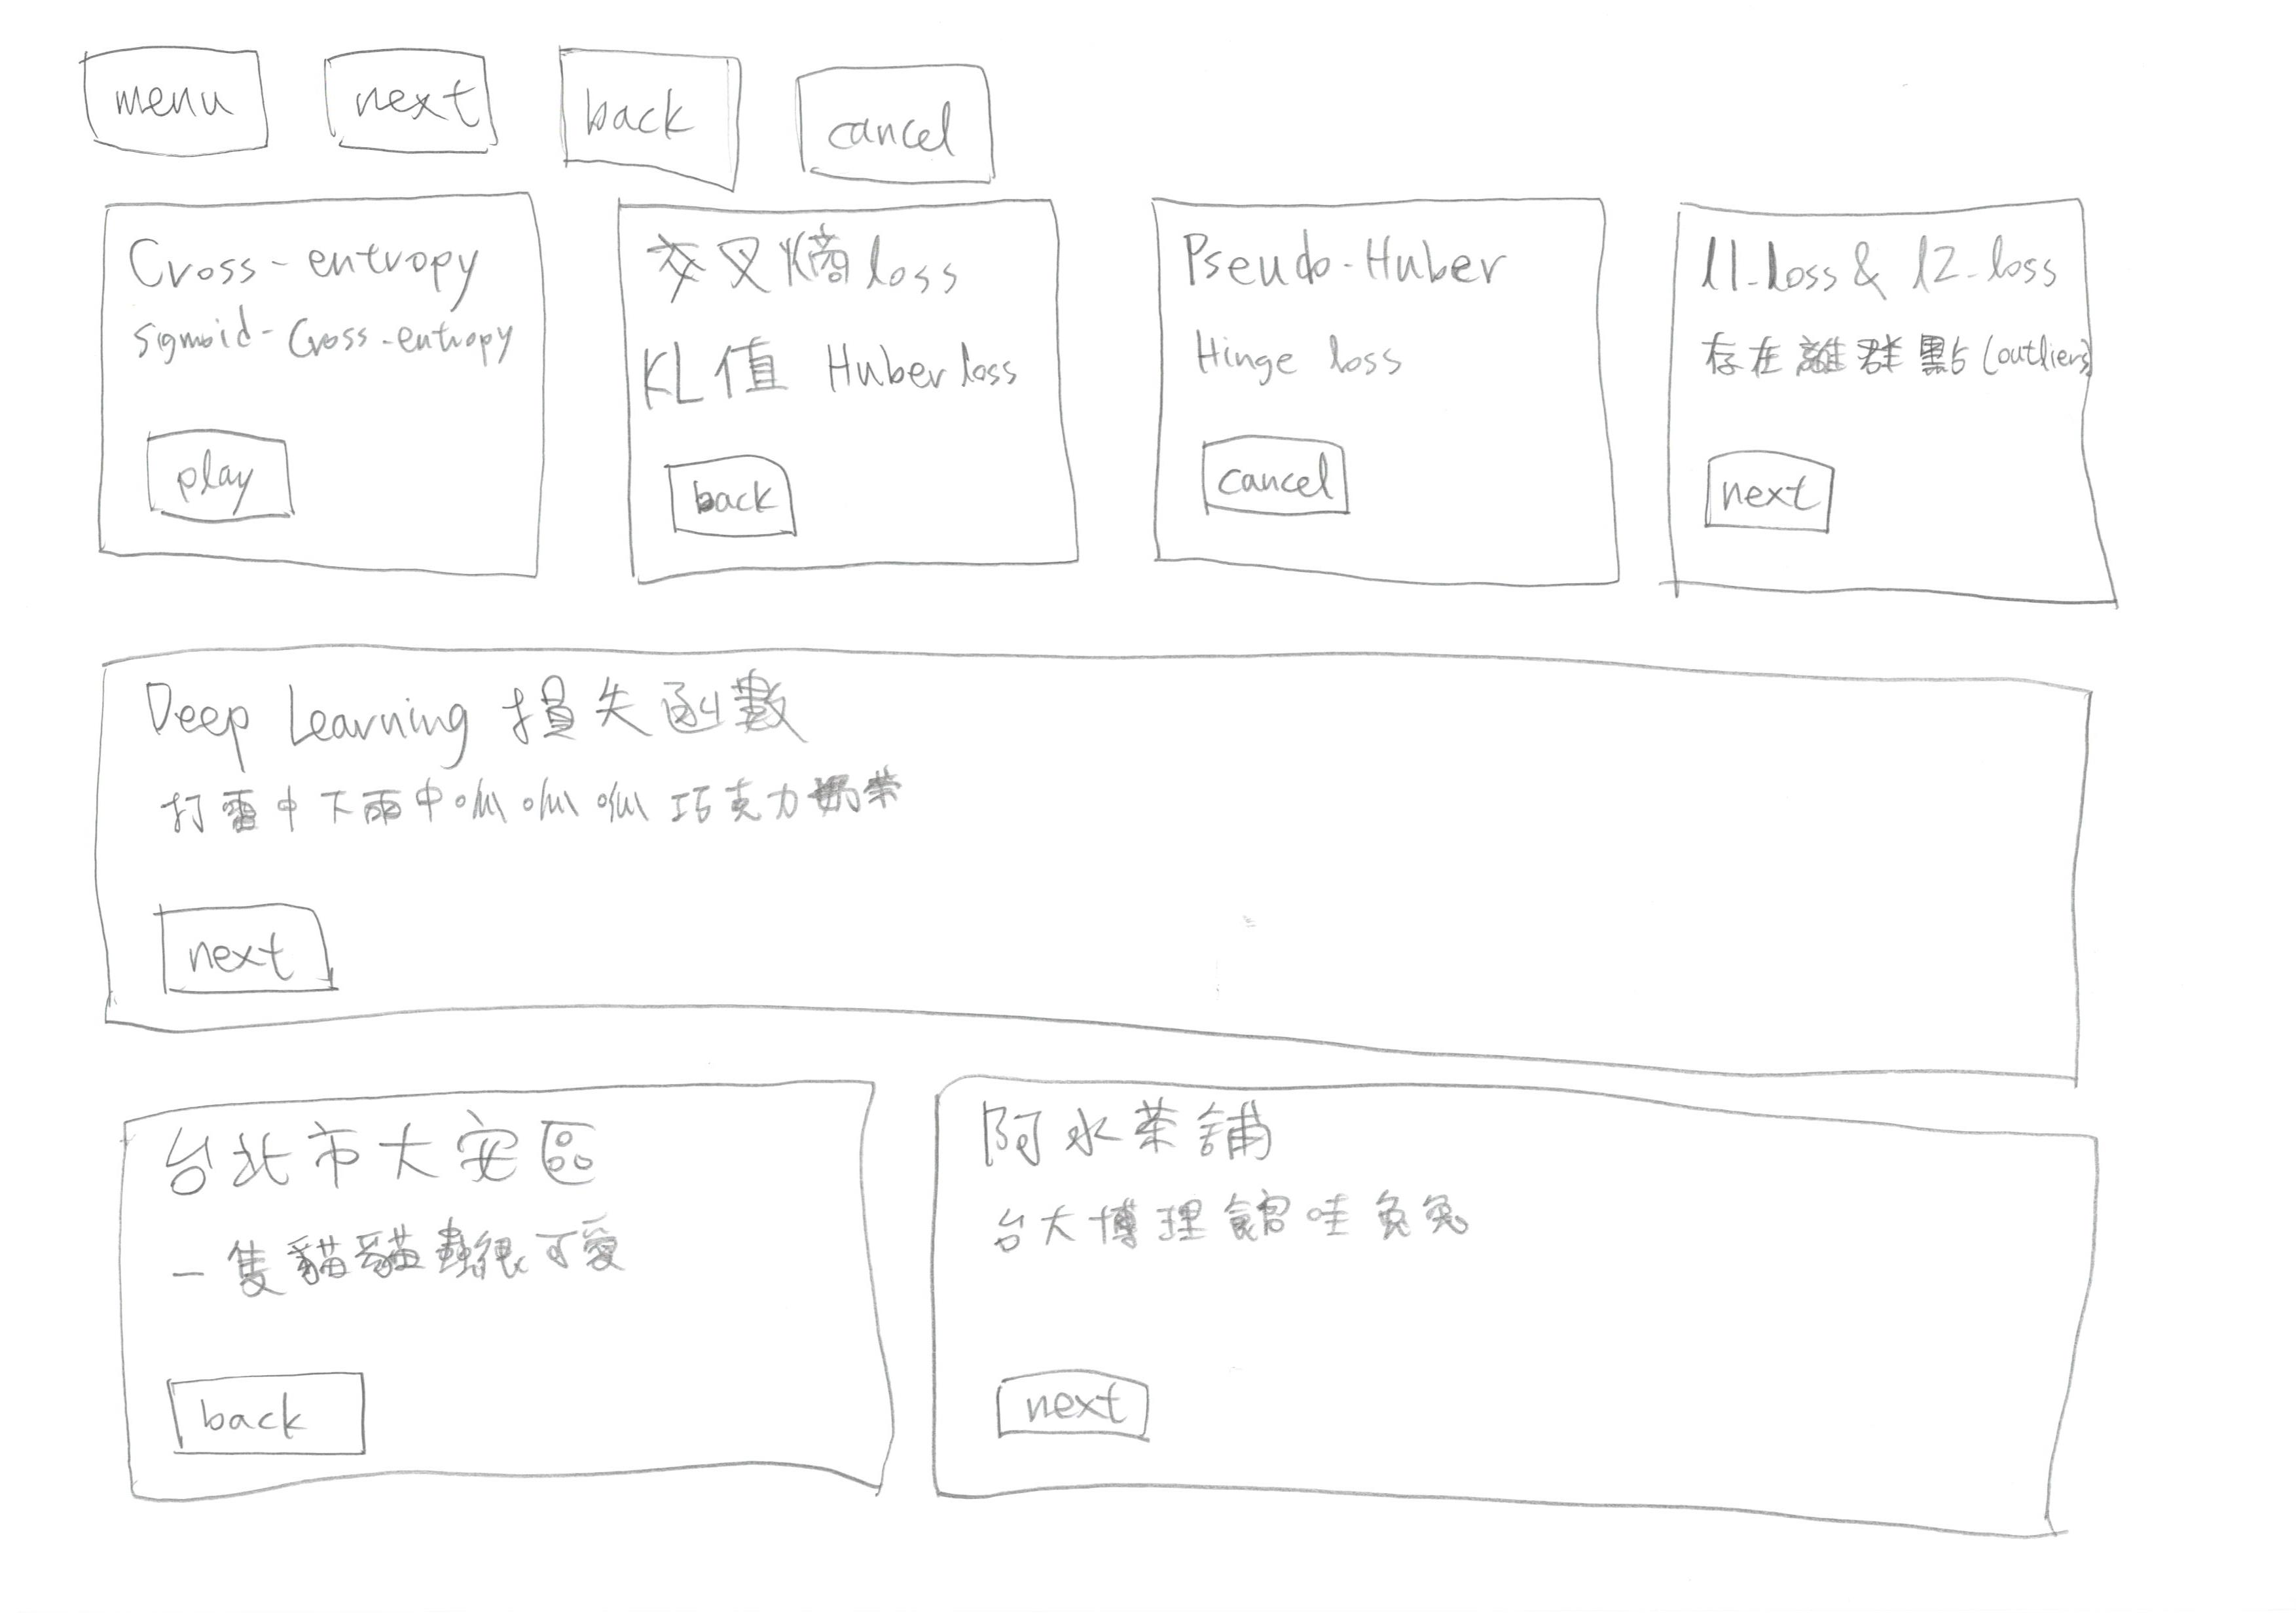 menu next back cancel
Cross-entropy
Sigmoid-Cross-entropy
play
交叉熵loss
KL值 Huber loss
back
Pseudo-Huber
Hinge loss
cancel
l1-loss & l2-loss
存在離群點(outliers)
next
Deep Learning 損失函數
打雷中下雨中呱呱呱巧克力
next
台北市大安區
一隻貓貓蟲很可愛
back
阿水茶舖
台大博理館哇兔兔
next